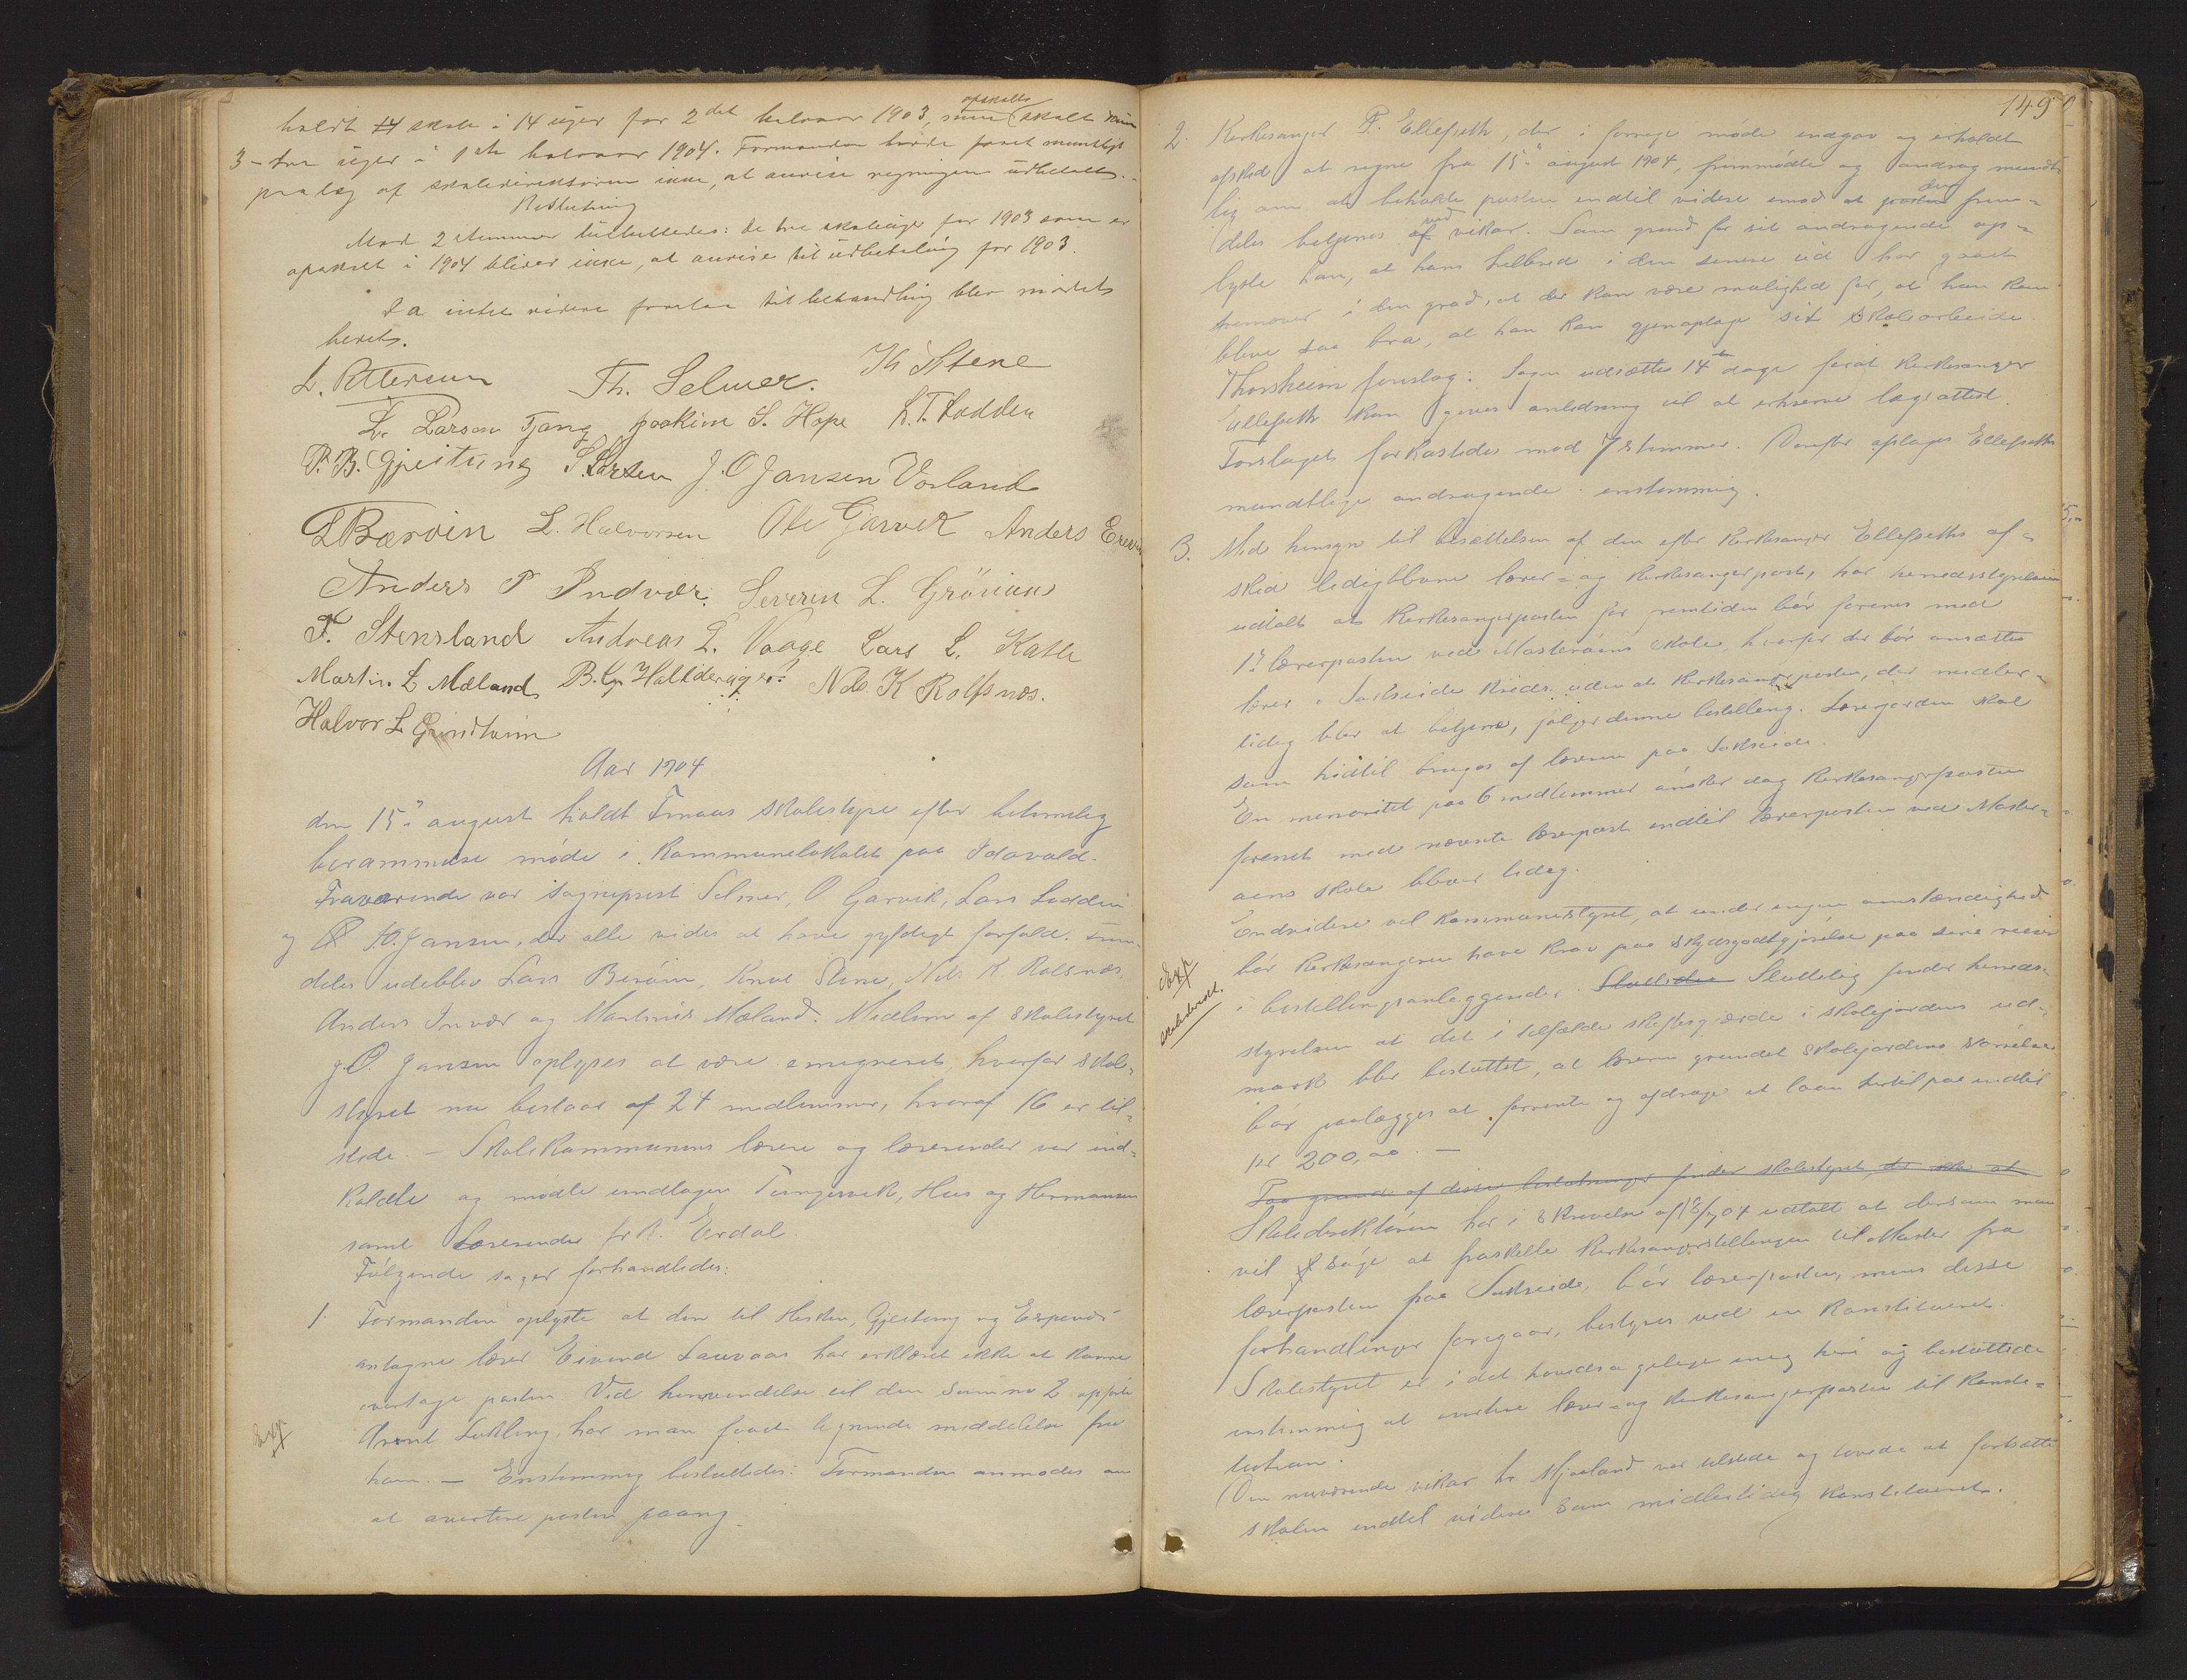 holdt 14 skole i 14 uger for 2det halvaar 1903, opsatte skolt kun
3 - tre uger i 1ste halvaar 1904. Formanden havde faaet mundtligt
paalæg af skoledirektøren ikke, at anvise regningen udbetalt. -
Beslutning
Mod 2 stemmer besluttedes: de tre skoleuger for 1903 som er
opsat i 1904 bliver ikke, at anvise til udbetaling for 1903.
Da intet videre forelaa til behandling blev mødet
hevet.
L. Pettersen Th. Selmer. Kn Stene
L. Larsen Tjong Joakim S. Hope L. T. Lodden
P. B. Gjeitung S. Larsen J. O Jansen Vorland
L Bærøen L. Halvorsen Ole Garvik Anders
Anders P Indvær. Severin L. Grønnaas
T. Stensland Andreas L. Vaage Lars L. Katle
Martin L Mæland B. Kn Hallderager Nils K Rolfsnes.
Halvor L Grindheim
Aar 1904
den 15de august holdt Finaas skolestyre efter betimelig
berammelse møde i Kommunelokalet paa Idavold.
Fraværende var sogneprest Selmer, O Garvik, Lars Lodden
og J. O. Jansen, der alle vides at have gyldigt forfald. Frem-
deles udeblev Lars Berøen, Knut Stene, Nils K. Rolfsnæs,
Anders Indvær og Martinus Mæland. Medlem af skolestyret
J. O. Jansen oplyses at være emigreret, hvorfor skole-
styret nu bestaar af 24 medlemmer, hvoraf 16 er til-
stede. - Skolekommunens lærere og lærerinder var ind-
kaldte og mødte undtagen Tungesvik, Hus og Hermansen
samt Lærerinde frk. Erdal.
Følgende sager forhandledes:
1. Formanden oplyste at den til Hisken, Gjeitung og Espevær
antagne lærer Eivind Lauvaas har erklæret ikke at kunne
overtage posten. Ved henvendelse til den som no 2 opførte
har man faaet lignende meddelelse fra
Exp
ham. - Enstemmig besluttedes: Formanden anmodes om
at avertere posten paany.
149
2. Kirkesanger P. Ellefseth, der i forrige møde indgav og erholdt
afsked at regne fra 15de august 1904, fremmødte og androg mundt-
lig om at beholde posten indtil videre imod at posten den frem-
deles betjenes af ved vikar. Som grund for sit andragende op-
lyste han, at hans helbred i den senere tid har gaaet
fremover i den grad, at der kan være mulighed for, at han kan
blive saa bra, at han kan gjenoptage sit skolearbeide.
Thorsheim foreslog: Sagen udsættes 14 dage forat kirkesanger
Ellefseth kan gives anledning til at erhverve lægeattest.
Forslaget forkastedes mod 7 stemmer. Derefter optages Ellefseths
mundtlige andragende enstemmig.
3. Med hensyn til besættelsen af den efter kirkesanger Ellefseths af-
sked ledigblevne lærer- og kirkesangerpost, har herredsstyrelsen
udtalt at kirkesangerposten for fremtiden bør forenes med
1ste lærerposten ved Mosterøens skole, hvorfor der bør ansættes
lærer i Sakseide kreds uden at kirkesangerposten, der midler-
tidig blir at betjene, følger denne bestilling. Lærerjorden skal
som hidtil bruges af læreren paa Sakseide.
En minoritet paa 6 medlemmer ønsker dog kirkesangerposten
forenet med nævnte lærerpost indtil lærerposten ved Moster-
øens skole bliver ledig.
Endvidere vil kommunestyret, at under ingen omstændighed
bør kirkesangeren have krav paa skydsgodtgjørelse paa sine reiser
Exp
skoledirekt.
i bestillingsanliggender. Sluttelig finder herreds-
styrelsen at det i tilfælde skiftesgjærde i skolejordens ud-
mark blir besluttet, at læreren grundet skolejordens størrelse
bør paalægges at forrente og afdrage et laan hertil paa indtil
kr 200,00. -
Paa grund af disse beslutninger finder skolestyret, at
Skoledirektøren har i skrivelse af 18/7 04 udtalt at dersom man
vil søge at fraskille kirkesangerstillingen til Moster fra
lærerposten paa Sakseide, bør lærerposten, mens disse
forhandlinger foregaar, bestyres ved en konstitueret.
Skolestyret er i det hovedsagelige enig heri og besluttede
enstemmig at avertere lærer- og kirkesangerposten til konsti-
tution.
Den nuværende vikar hr Mjæland var tilstede og lovede at fortsætte
skolen indtil videre som midlertidig konstitueret.